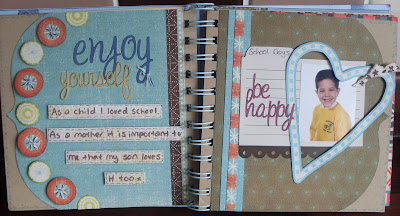 enjoy
yourself
As a child I loved school,
As a mother it is important to
me that my son loves
it too x
School Days
be
happy